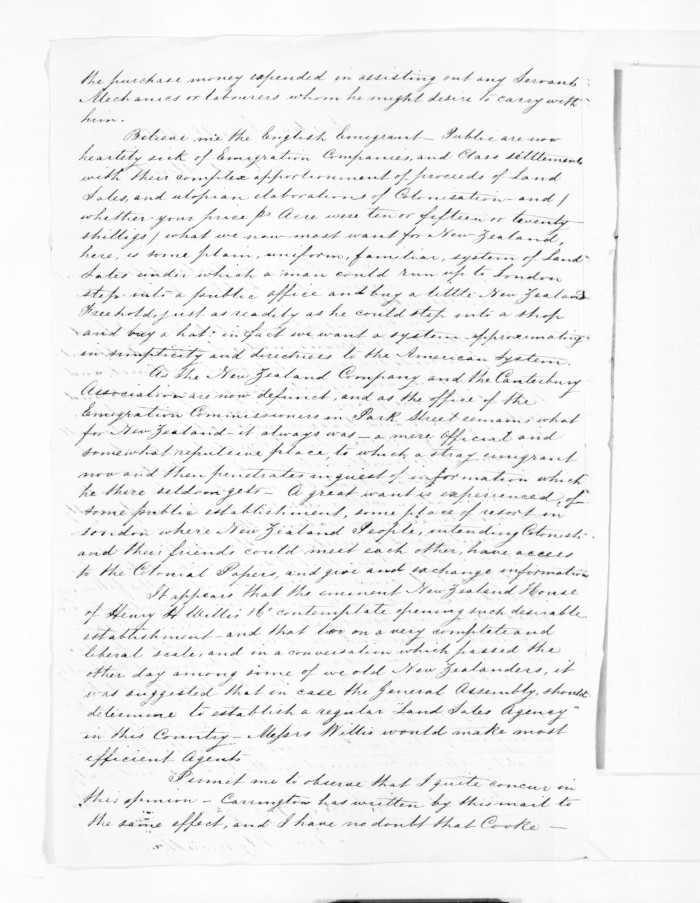 the purchase money expended in assisting out any Servants
Mechanics or labourers whom he might desire to carry with
him.
Believe me the English Emigrant - Public are now
heartely sick of Emigration Companies, and Class settlements
with their complex apportionment of proceeds of Land
Sales, and utopian elaborations of Colonisation - and /
whether your price pr Acre were ten or fifteen or twenty
shilligs / what we now most want for New Zealand,
here, is some plain, uniform, familiar, system of Land
Sales under which a man could run up to London
step into a public office and buy a little New Zealand
Freehold, just as readily as he could step into a shop
and buy a hat: in fact we want a system approximating
in simplicity and directness to the American System.
As the New Zealand Company and the Canterbury
Association are now defunct, and as the office of the
Emigration Commissioners in Park Street remains what
for New Zealand - it always was - a mere Official and
somewhat repulsive place, to which a stray emigrant
now and then penetrates in quest of information which
he there seldom gets - A great want is experienced, of
some public establishment, some place of resort in
London where New Zealand People, intending Colonists
and their friends could meet each other, have access
to the Colonial Papers, and give and exchange information
It appears that the eminent New Zealand House
of Henry H Willis & Co contemplate opening such desirable
establishment - and that too on a very complete and
liberal scale, and in a conversation which passed the
other day among some of we old New Zealanders, it
was suggested that in case the General Assembly should
determine to establish a regular "Land Sales Agency"
in this Country - Messrs Willis would make most
efficient Agents
Permit me to observe that I quite concur in
this opinion - Carrington has written by this mail to
the same effect, and I have no doubt that Cooke -